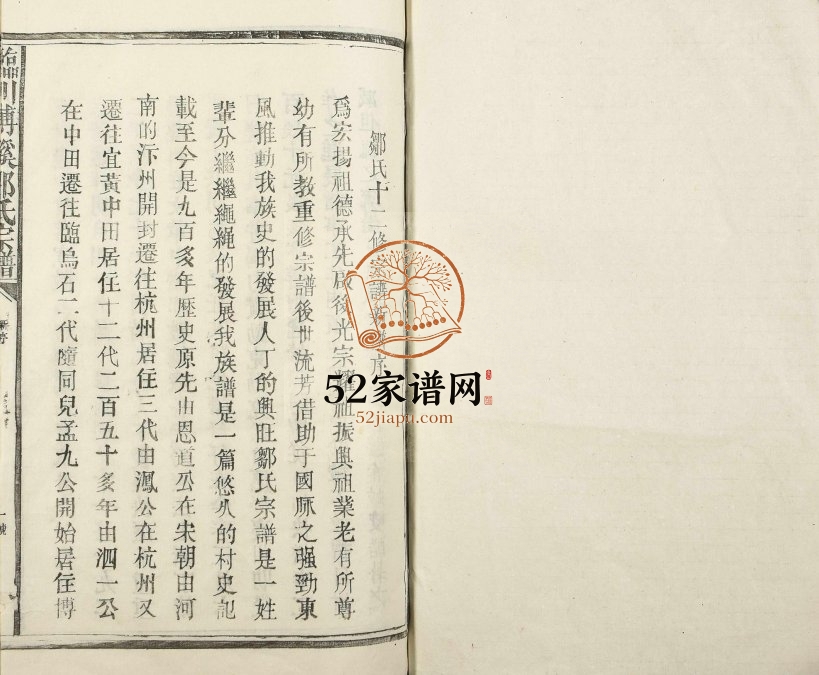 鄒氏十二修
為宏揚祖德承先啟後光宗耀祖振興祖業老有所尊
幼有所教重修宗譜後世流芳借助于國脉之强勁東
風推動我族史的發展人丁的興旺鄒氏宗譜是一姓
輩分繼繼繩繩的發展我族譜是一篇悠久的村史記
載至今是九百多年歷史原先由恩道公在宋朝由河
南的汴州開封遷往杭州居住三代由渢公在杭州又
遷往宜黃中田居住十二代二百五十多年由泗一公
在中田遷往臨烏石二代隨同兒孟九公開始居住博
臨川博溪鄒氏宗譜
52家谱网
52jiapu.com